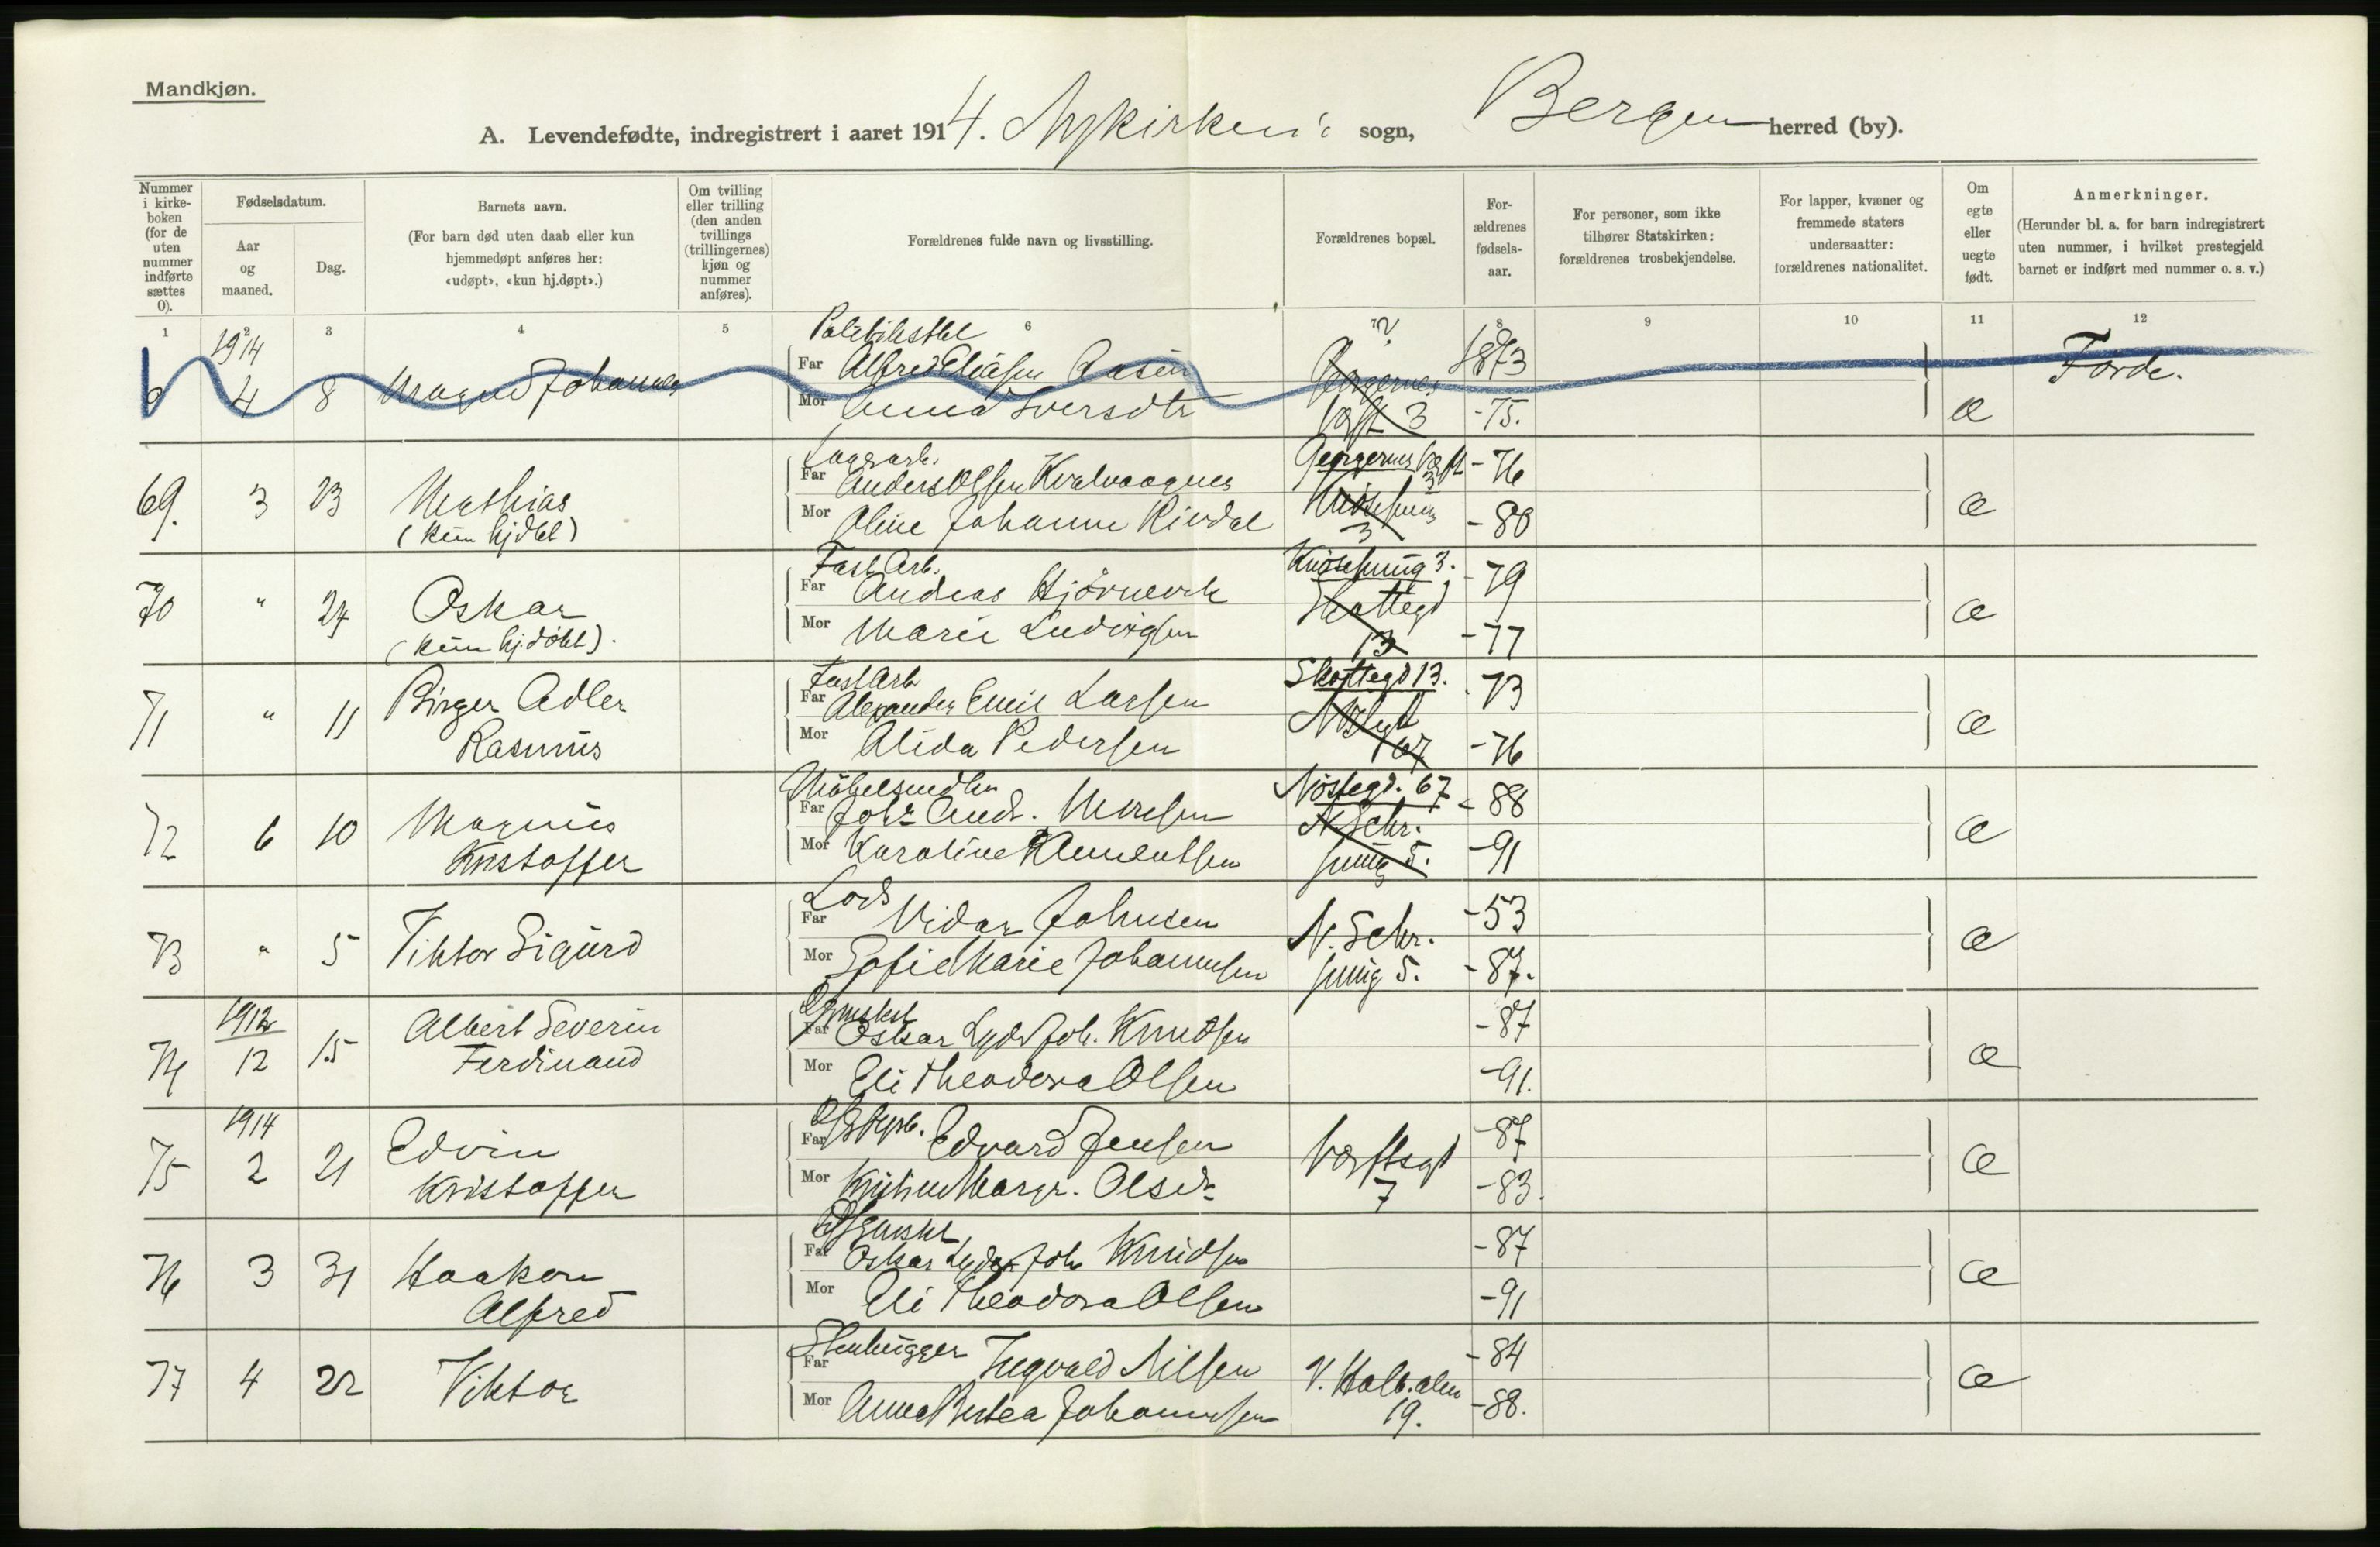 Mandkjøn.
A. Levendefødte, indregistrert i aaret 1914. Nykirken's sogn, Bergen herred (by).
Nummer i kirkeboken (for de uten nummer indførte sættes 0).
Fødselsdatum.
Aar og maaned.
Dag.
Barnets navn.
(For barn død uten daab eller kun hjemmedøpt anføres her: «udøpt», «kun hj.døpt».)
Om tvilling eller trilling (den anden tvillings (trillingernes) kjøn og nummer anføres).
Forældrenes fulde navn og livsstilling.
Forældrenes bopæl.
Forældrenes fødselsaar.
For personer, som ikke tilhører Statskirken: forældrenes trosbekjendelse.
For lapper, kvæner og fremmede staters undersaatter: forældrenes nationalitet.
Om egte eller uegte født.
Anmerkninger.
(Herunder bl. a. for barn indregistrert uten nummer, i hvilket prestegjeld barnet er indført med nummer o. s. v.)
1 2 3 4 5 6 7 8 9 10 11 12
1914 ?
0 4 8 Magnus Johannes
Far Alfred Eliasen Aasen 1873
Mor Anna Iversdtr Georgernes værft 3 -75. æ Førde.
69. 3 23 Mathias
(kun hjdøbt)
Far Anders Olsen Kvalvaagnes Georgernes værft 3 -76
Mor Oline Johanne Rivdal 3 -80 æ
70 " 24 Oskar
(kun hj.døbt).
Fast Arb.
Far Andreas Hjørnevik Knøsesmug 3. -79
Mor Marie Ludvigsen Skottegd 13 -77 æ
71 " 11 Birger Adler
Rasmus
Fast Arb
Far Alexander Emil Larsen Skottegd 13. -73
Mor Alida Pedersen Nøstegd 67 -76 æ
72 6 10 Magnus
Kristoffer
Møbelsnedker
Far Johs Andr. Monsen Nøstegd. 67 -88
Mor Karoline Klementsen N. Schr. smug 5. -91 æ
73 " 5 Viktor Sigurd
Lods
Far Vidar Johnsen -53
Mor Sofie Marie Johannesen N. Schr. smug 5. -87. æ
1912
74 12 15 Albert Severin
Ferdinand
Far Oskar Lyder Joh. Knudsen -87
Mor Eli Theodora Olsen -91. æ
1914
75 2 21 Edvin
Kristoffer
Far Edvard Jensen -87
Mor Margr. Olsdr Værftsgd 7 -83. æ
76 3 31 Haakon
Alfred
Far Oskar Lyder Joh Knudsen -87
Mor Eli Theodora Olsen -91 æ
77 4 22 Viktor
Stenhugger
Far Ingvald Nilsen -84
Mor Anna Bertea Johannesen V. Holb. alm 19. -88. æ